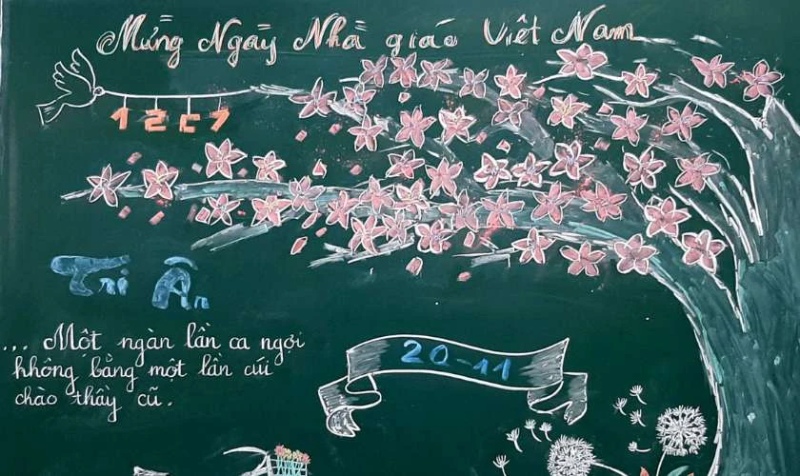 Mừng Ngày Nhà giáo Việt Nam
12C7
Tri Ân
... Một ngàn lần ca ngợi
không bằng một lần cúi
chào thầy cũ.
20-11